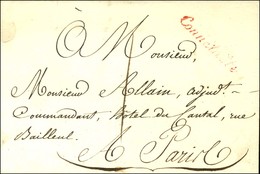 À Monsieur,
Monsieur Allain, adjudt-
Commandant, hotel du Cantal, rue
Bailleul.
A Paris